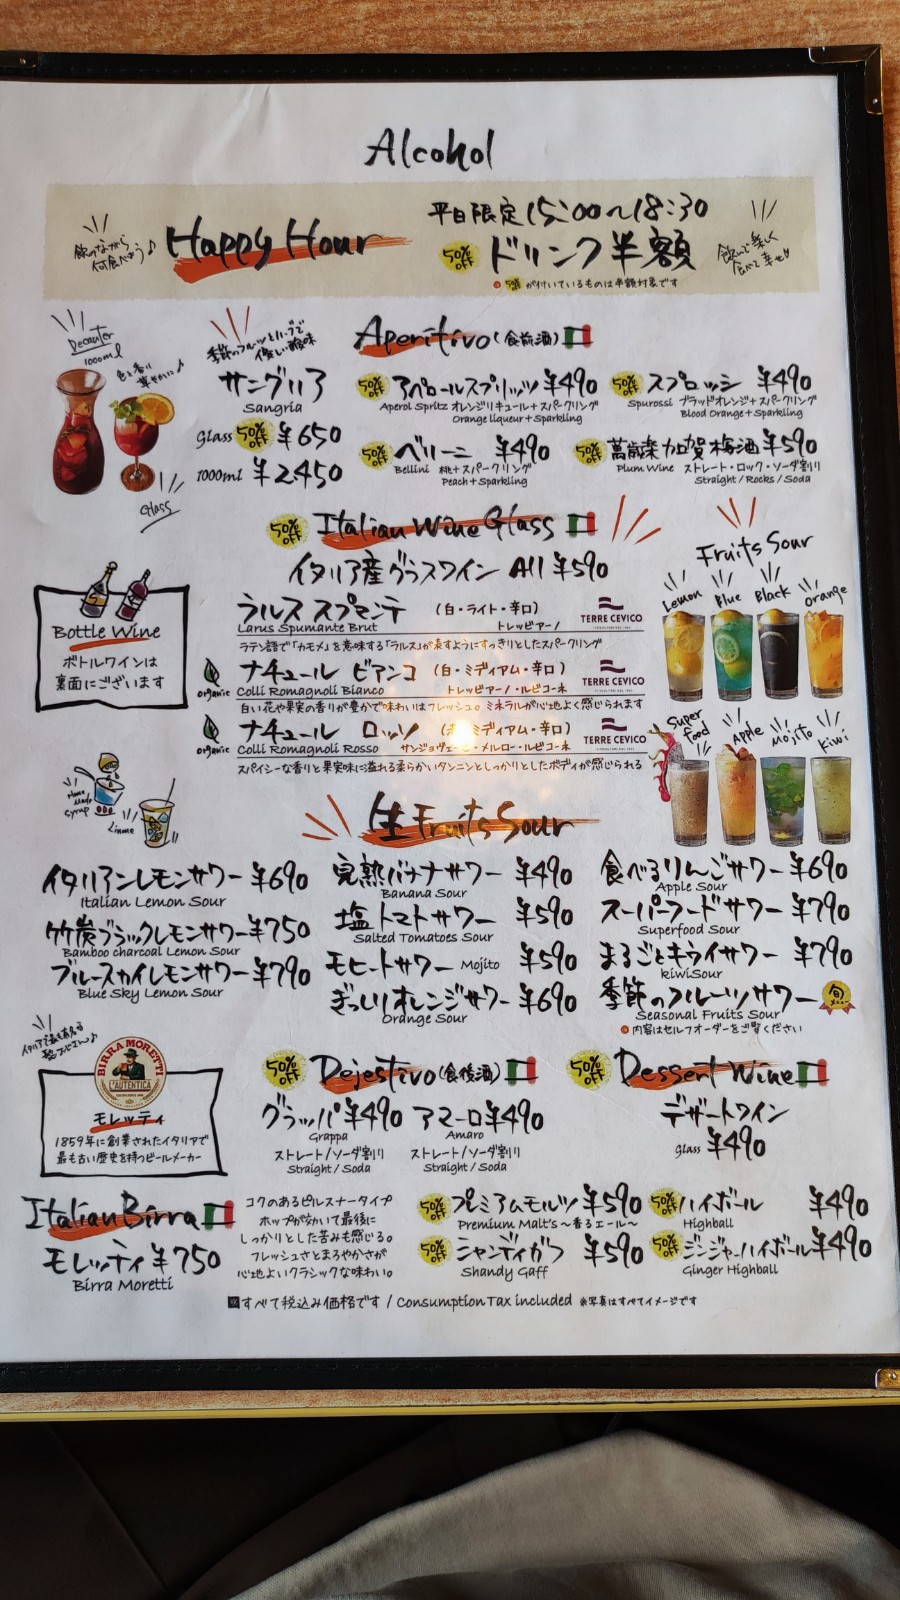 Alcohol
飲みながら
何食べよう♪
Happy Hour
平日限定15:00~18:30
50%OFF ドリンク半額
50%OFF が付いているものは半額対象です
飲んで楽しく
食べて幸せ!!
Decanter
1000ml
色と香り
華やかに♪
Glass
季節のフルーツとハーブで
優しい酸味
サングリア
Sangria
Glass 50%OFF ¥650
1000ml ¥2,450
Aperitivo(食前酒)
50%OFF アペロールスプリッツ ¥490
Aperol Spritz オレンジリキュール+スパークリング
Orange liqueur+Sparkling
50%OFF スプロッシ ¥490
Spurossi ブラッドオレンジ+スパークリング
Blood Orange+Sparkling
50%OFF ベリーニ ¥490
Bellini 桃+スパークリング
Peach+Sparkling
50%OFF 萬歳楽加賀梅酒 ¥590
Plum Wine ストレート・ロック・ソーダ割り
Straight/Rocks/Soda
50%OFF Italian Wine Glass
イタリア産グラスワイン All ¥590
Bottle Wine
ボトルワインは
裏面にございます
ラルス スプマンテ (白・ライト・辛口)
Larus Spumante Brut トレッビアーノ
TERRE CEVICO
ラテン語で「カモメ」を意味する「ラルス」が表すようにすっきりとしたスパークリング
organic ナチュール ビアンコ (白・ミディアム・辛口)
Colli Romagnoli Bianco トレッビアーノ・ルビコーネ
TERRE CEVICO
白い花や果実の香りが豊かで味わいはフレッシュ。ミネラルが心地よく感じられます
organic ナチュール ロッソ ミディアム・辛口)
Colli Romagnoli Rosso サンジョヴェーゼ・メルロー・ルビコーネ
TERRE CEVICO
スパイシーな香りと果実味に溢れる柔らかいタンニンとしっかりとしたボディが感じられる
Fruits Sour
Lemon Blue Black Orange
Super food Apple Mojito Kiwi
Home Made syrup
生Fruits Sour
イタリアンレモンサワー ¥690
Italian Lemon Sour
竹炭ブラックレモンサワー ¥750
Bamboo charcoal Lemon Sour
ブルースカイレモンサワー ¥790
Blue Sky Lemon Sour
完熟バナナサワー ¥490
Banana Sour
塩トマトサワー ¥590
Salted Tomatoes Sour
モヒートサワー Mojito ¥590
ぎっしりオレンジサワー ¥690
Orange Sour
食べるりんごサワー ¥690
Apple Sour
スーパーフードサワー ¥790
Superfood Sour
まるごとキウイサワー ¥790
kiwiSour
季節のフルーツサワー 旬メニュー
Seasonal Fruits Sour
内容はセルフオーダーをご覧ください
BIRRA MORETTI
L'AUTENTICA
モレッティ
1859年に創業されたイタリアで
最も古い歴史を持つビールメーカー
50%OFF Dejestivo(食後酒)
グラッパ ¥490
Grappa
ストレート/ソーダ割り
Straight/Soda
アマーロ ¥490
Amaro
ストレート/ソーダ割り
Straight/Soda
50%OFF Dessert Wine
デザートワイン
Glass ¥490
Italian Birra
モレッティ ¥750
Birra Moretti
コクのあるピルスナータイプ
ホップが効いて最後に
しっかりとした苦みも感じる。
フレッシュさとまろやかさが
心地よいクラシックな味わい。
50%OFF プレミアムモルツ ¥590
Premium Malt's~香るエール~
50%OFF シャンディガフ ¥590
Shandy Gaff
50%OFF ハイボール ¥490
Highball
50%OFF ジンジャーハイボール ¥490
Ginger Highball
※すべて税込み価格です / Consumption Tax included ※写真はすべてイメージです